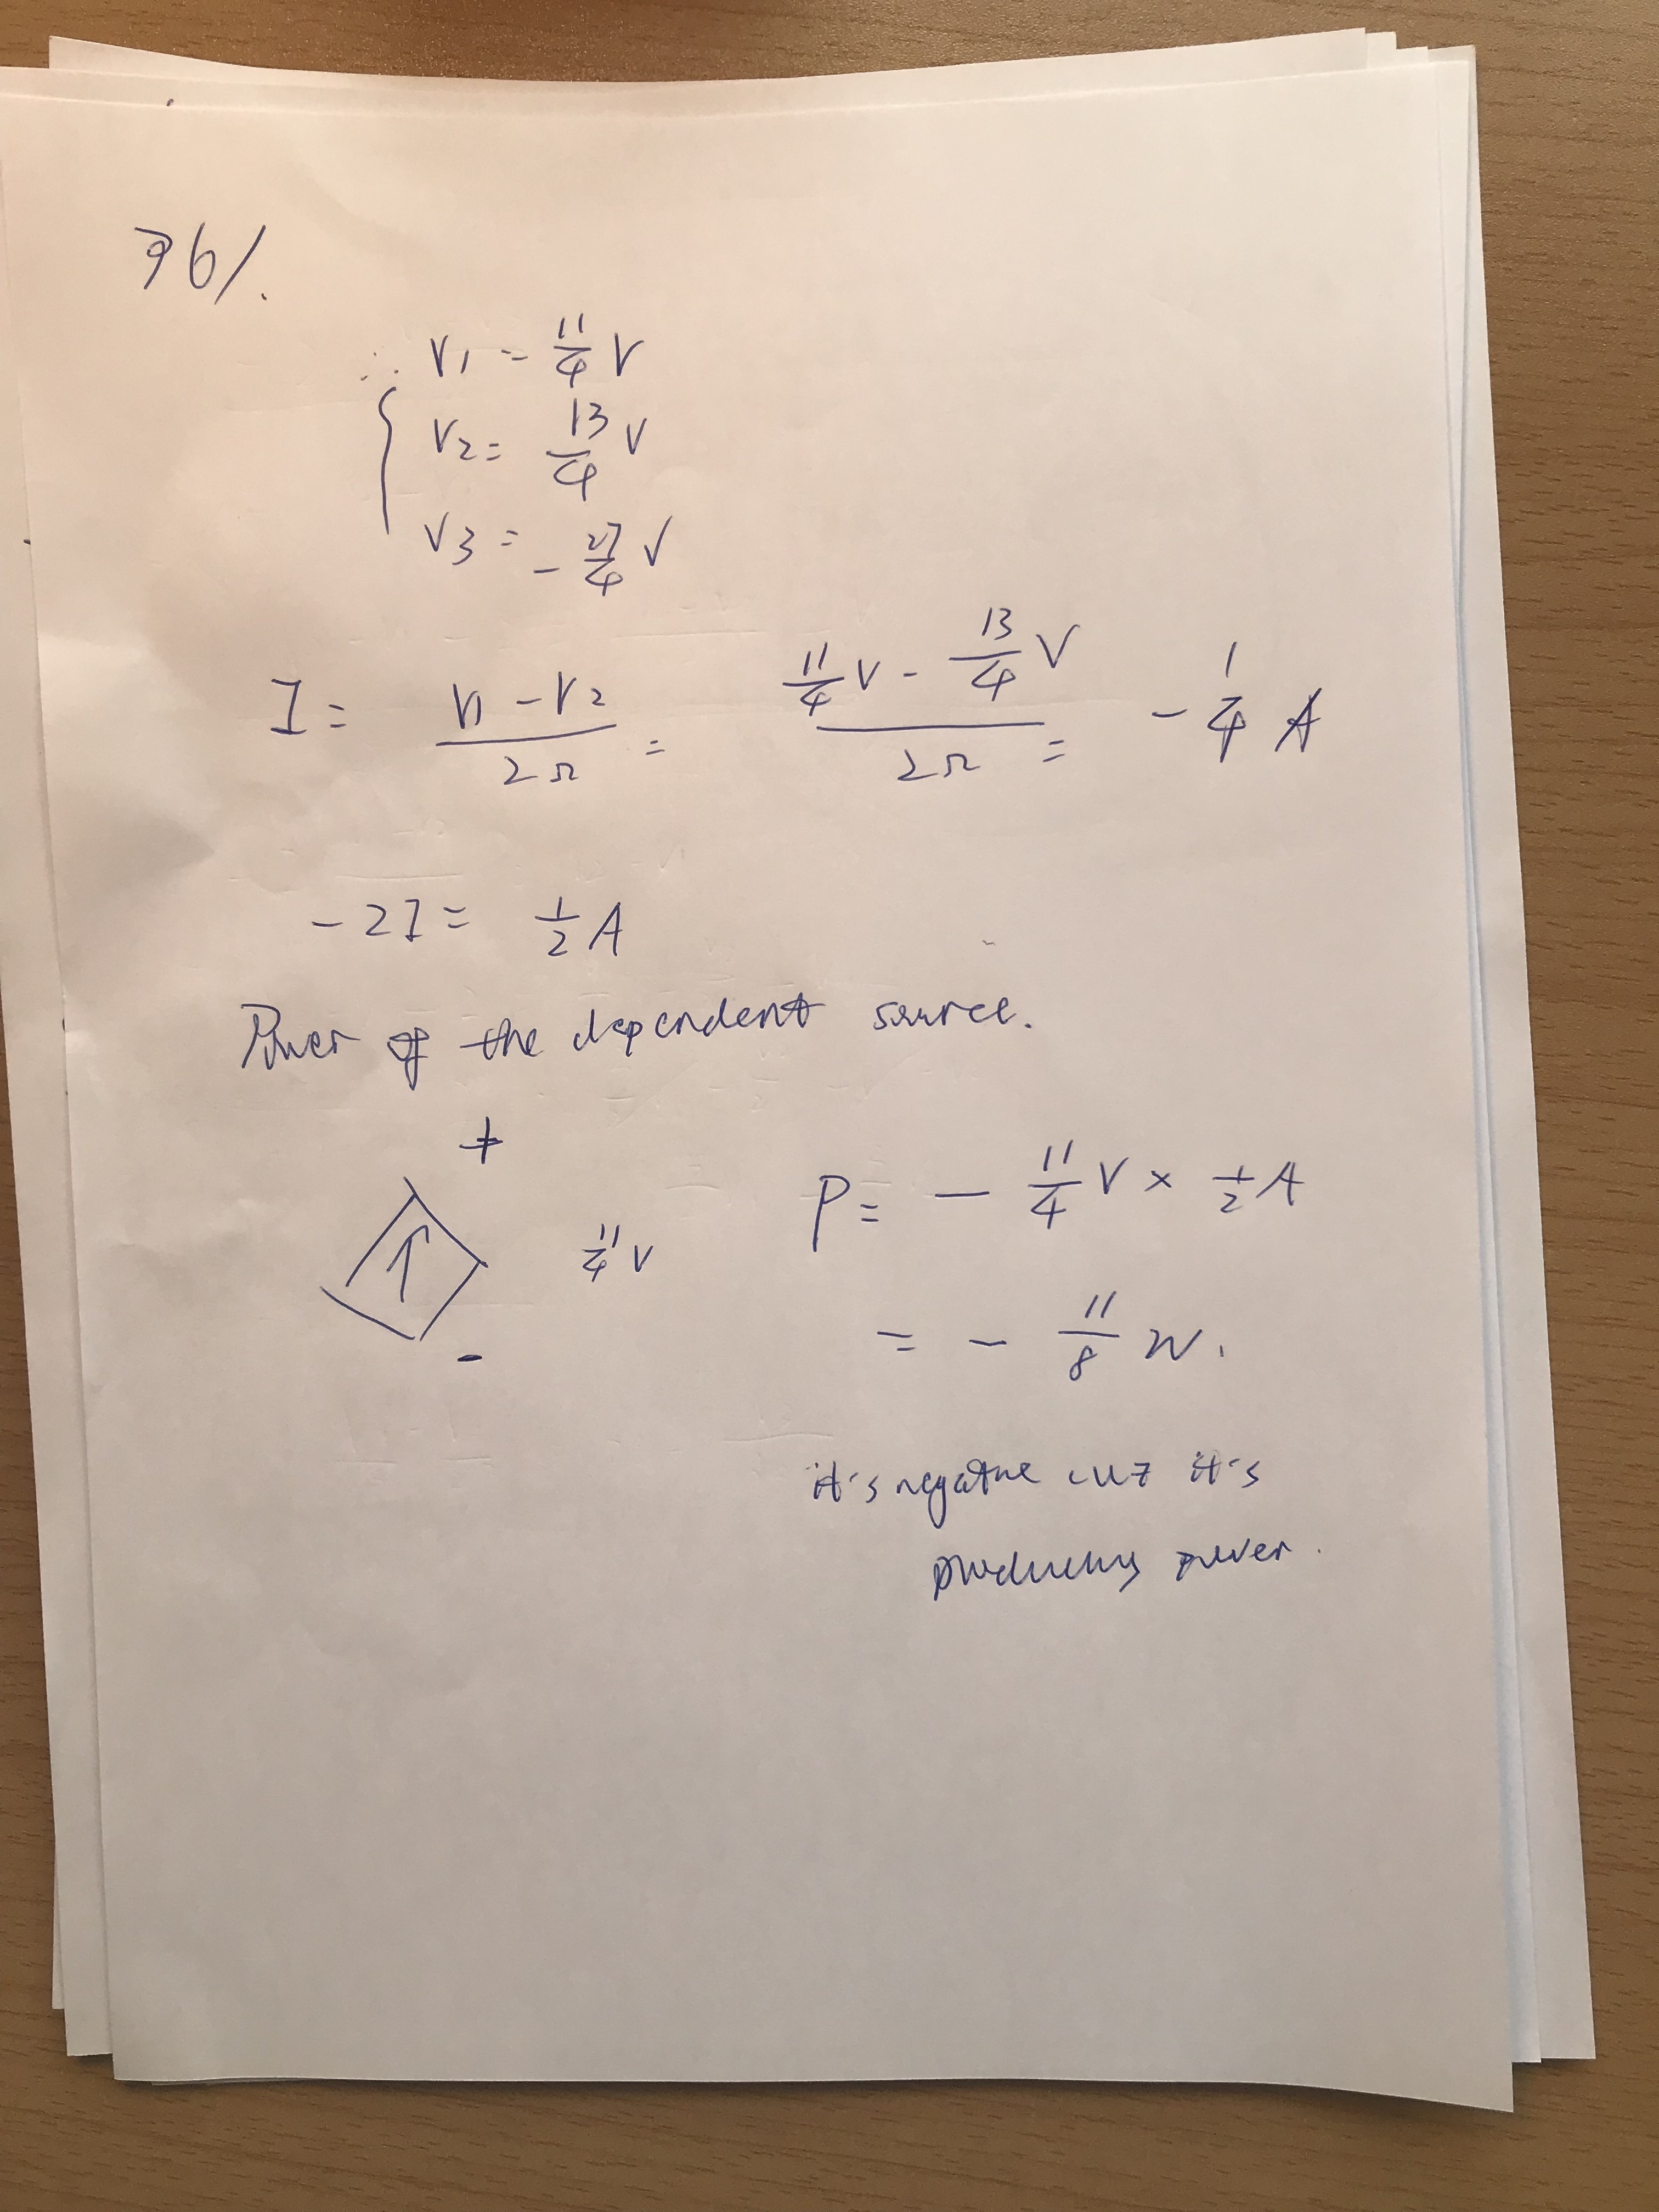 36/.
∴ V1 = 11/4 V
V2 = 13/4 V
V3 = - 27/4 V
I = (V1 - V2)/2Ω = (11/4 V - 13/4 V)/2Ω = - 1/4 A
-2I = 1/2 A
Power of the dependent source.
+
↑ 11/4 V
-
P = - 11/4 V × 1/2 A
= - 11/8 W.
it's negative cuz it's
producing power.